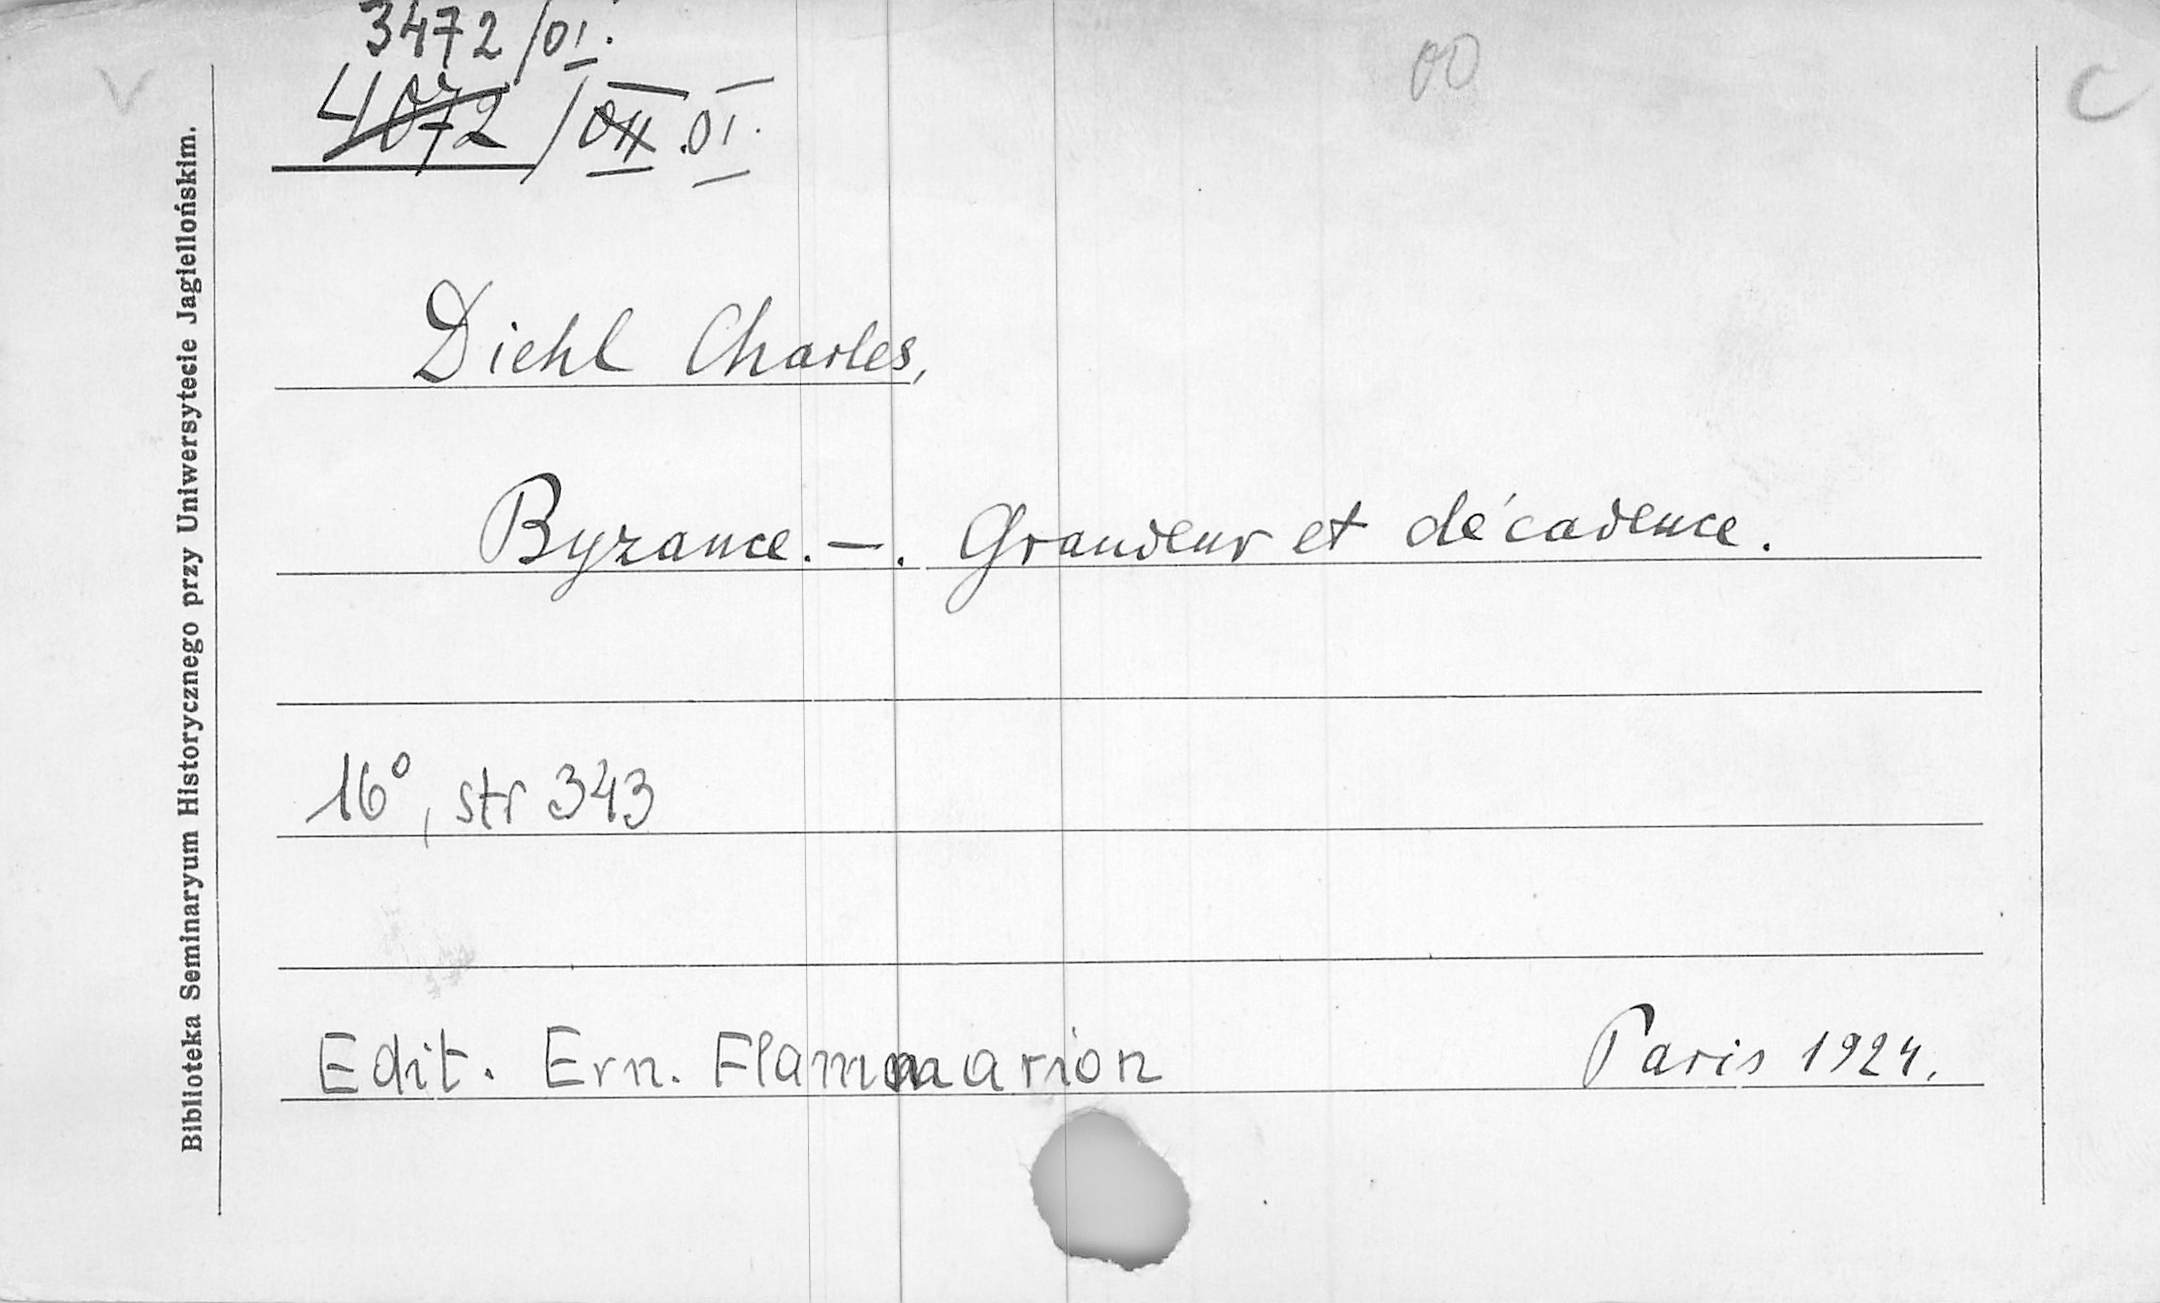 3472/OI.
4072/OII.OI.
OO
V
C
Biblioteka Seminaryum Historycznego przy Uniwersytecie Jagiellońskim.
Diehl Charles,
Byzance. —. Grandeur et décadence.
16°, str 343
Edit. Ern. Flammarion
Paris 1924.